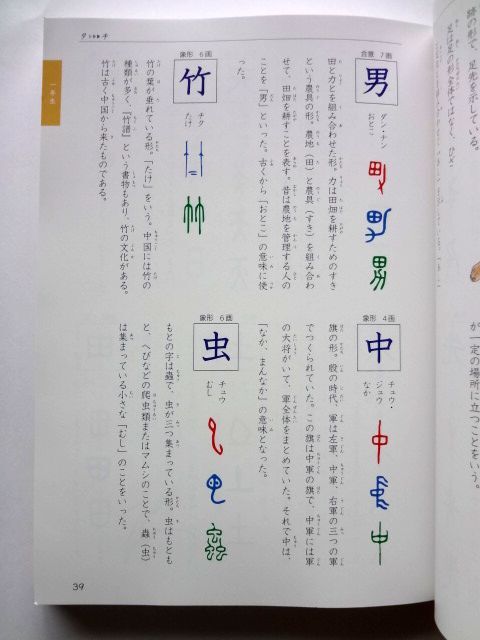 跡の形で、足先を示している。
が一定の場所に立つことをいう。
タンーチ
一年生
会意 7画
男
ダン・ナン
おとこ
田と力とを組み合わせた形。力は田畑を耕すためのすき
という農具の形。農地(田)と農具(すき)を組み合わ
せて、田畑を耕すことを表す。昔は農地を管理する人の
ことを「男」といった。古くから「おとこ」の意味に使
った。
象形 6画
竹
チク
たけ
竹の葉が垂れている形。「たけ」をいう。中国には竹の
種類が多く、『竹譜』という書物もあり、竹の文化がある。
竹は古く中国から来たものである。
象形 4画
中
チュウ・
ジュウ
なか
旗の形。殷の時代、軍は左軍、中軍、右軍の三つの軍
でつくられていた。この旗は中軍の旗で、中軍には軍
の大将がいて、軍全体をまとめていた。それで中は、
「なか、まんなか」の意味となった。
象形 6画
虫
チュウ
むし
もとの字は蟲で、虫が三つ集まっている形。虫はもとも
と、へびなどの爬虫類またはマムシのことで、蟲(虫)
は集まっている小さな「むし」のことをいった。
39